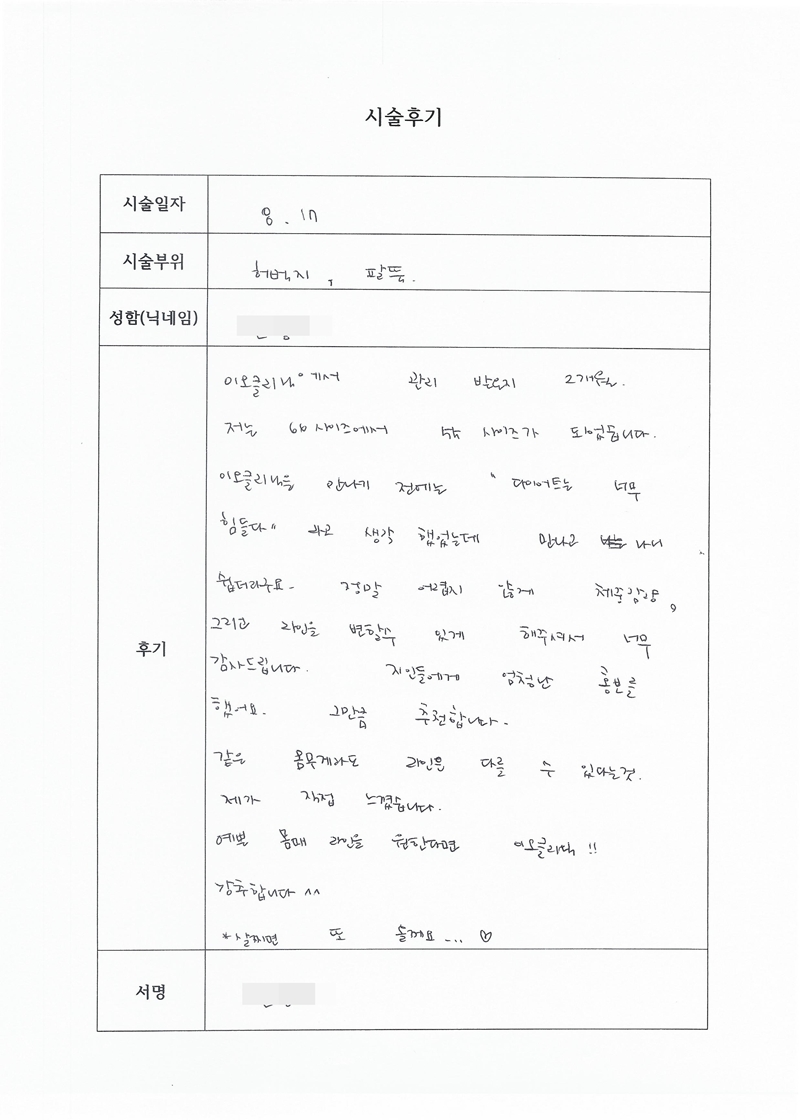 시술후기
시술일자 8. 17
시술부위 허벅지, 팔뚝.
성함(닉네임)
후기
이오클리닉에서 관리 받은지 2개월.
저는 66사이즈에서 사이즈가 되었습니다.
이오클리닉을 만나기 전에는 "다이어트는 너무
힘들다" 라고 생각 했었는데 만나고 나니
쉽더라구요. 정말 어렵지 않게 체중감량,
그리고 라인을 변할수 있게 해주셔서 너무
감사드립니다. 지인들에게 엄청난 홍보를
했어요. 그만큼 추천합니다.
같은 몸무게라도 라인은 다를 수 있다는것.
제가 직접 느꼈습니다.
예쁜 몸매 라인을 원한다면 이오클리닉 !!
강추합니다 ^^
*살찌면 또 올께요... ♡
서명